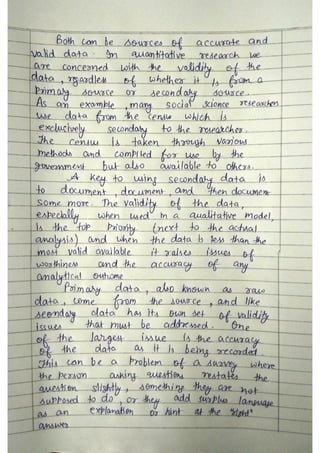 Both can be sources of accurate and
valid data. In quantitative research we
are concerned with the validity of the
data, regardless of whether it is from a
primary source or secondary source.
As an example, many social science researchers
use data from the census which is
exclusively secondary to the researcher.
The census is taken through various
methods and compiled for use by the
government but also available to others.
A key to using secondary data is
to document, document, and then document
some more. The validity of the data,
especially when used in a qualitative model,
is the top priority (next to the actual
analysis) and when the data is less than the
most valid available it raises issues of
worthiness and the accuracy of any
analytical outcome
Primary data, also known as raw
data, come from the source, and like
secondary data has its own set of validity
issues that must be addressed. One
of the largest issue is the accuracy
of the data as it is being recorded
This can be a problem of a survey where
the person asking questions restates the
question slightly, something they are not
supposed to do, or they add surplus language
as an explanation or hint at the "right"
answer